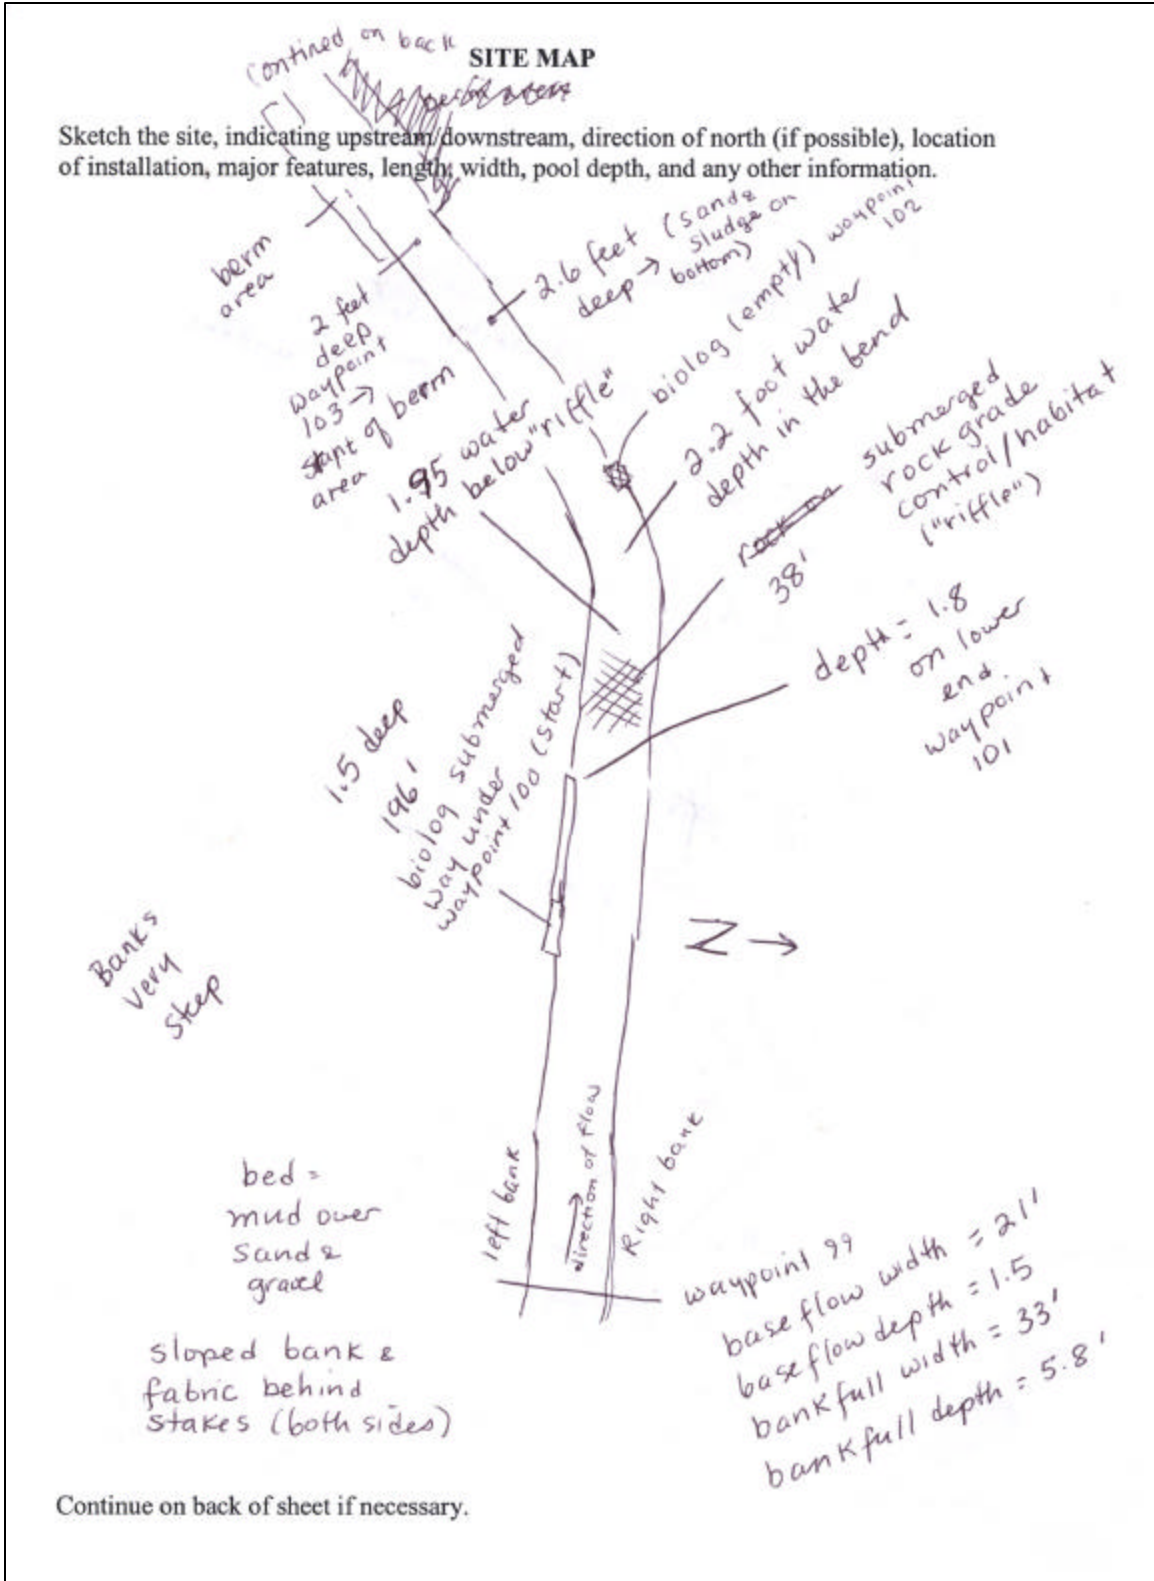 contined on back
SITE MAP
Sketch the site, indicating upstream/downstream, direction of north (if possible), location
of installation, major features, length, width, pool depth, and any other information.
berm
area
2 feet
deep
waypoint
103 →
start of berm
area
2.6 feet (sand &
deep → sludge on
bottom)
biolog (empty) waypoint
102
2.2 foot water
depth in the bend
1.95 water
depth below "riffle"
rock on
submerged
rock grade
control/habitat
("riffle")
38'
depth = 1.8
on lower
end
waypoint
101
1.5 deep
196'
biolog submerged
way under
waypoint 100 (start)
Z →
Banks
very
steep
left bank
direction of flow
Right bank
bed =
mud over
sand &
gravel
sloped bank &
fabric behind
stakes (both sides)
waypoint 99
baseflow width = 21'
baseflow depth = 1.5
bankfull width = 33'
bankfull depth = 5.8'
Continue on back of sheet if necessary.